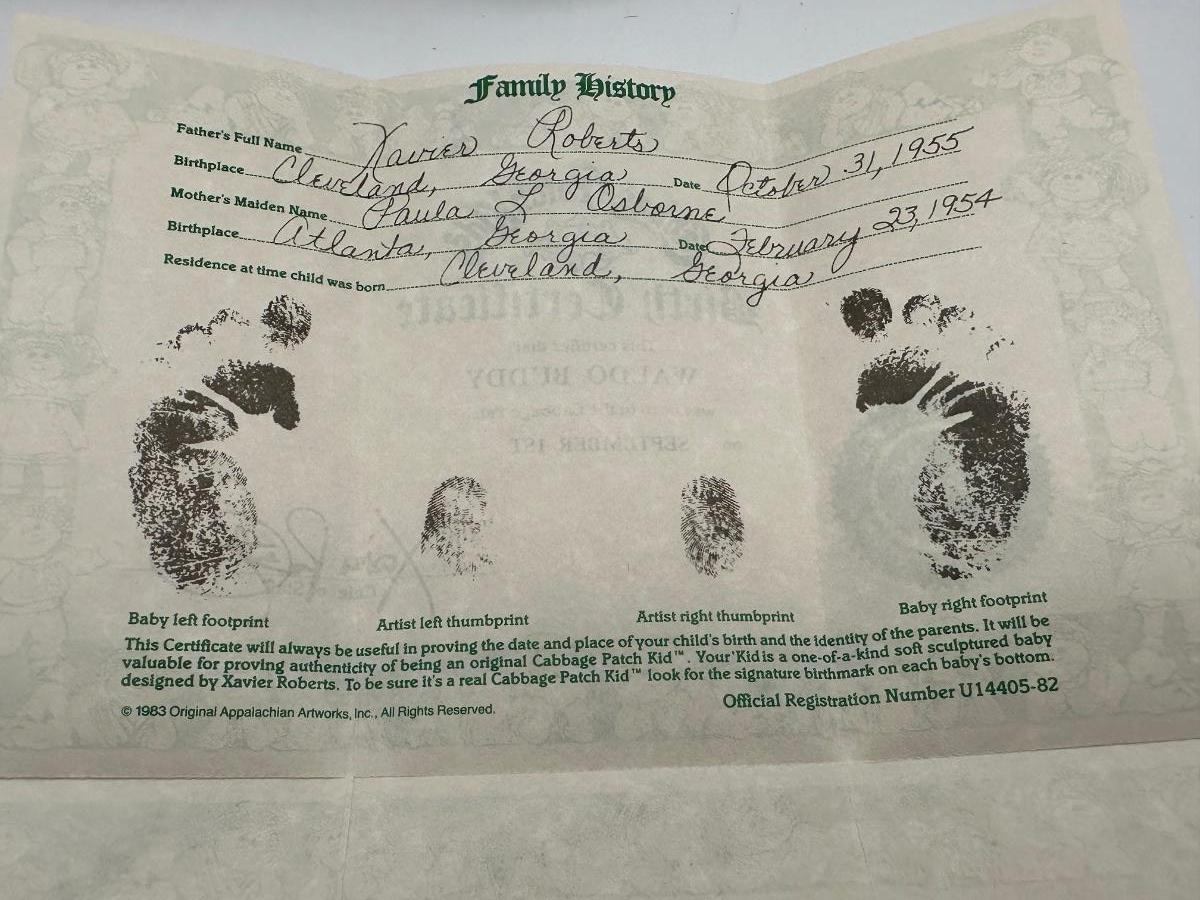 Family History
Father's Full Name Xavier Roberts
Birthplace Cleveland, Georgia Date October 31, 1955
Mother's Maiden Name Paula L Osborne
Birthplace Atlanta, Georgia Date February 23, 1954
Residence at time child was born Cleveland, Georgia
Birth Certificate
This certifies that
WALDO REDDY
SEPTEMBER 1ST
Baby left footprint
Artist left thumbprint
Artist right thumbprint
Baby right footprint
This Certificate will always be useful in proving the date and place of your child's birth and the identity of the parents. It will be
valuable for proving authenticity of being an original Cabbage Patch Kid™. Your 'Kid is a one-of-a-kind soft sculptured baby
designed by Xavier Roberts. To be sure it's a real Cabbage Patch Kid™ look for the signature birthmark on each baby's bottom.
Official Registration Number U14405-82
© 1983 Original Appalachian Artworks, Inc., All Rights Reserved.